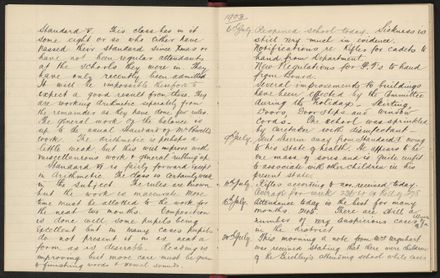 Standard V. This class has in it
some eight or so who either have
passed their Standard since Xmas or
have not been regular attendants
at the schools they were in. They
have only recently been admitted.
It will be impossible therefore to
expect a good result from these. They
are working Arithmetic separately from
the remainder as they have done far
The general work of the balance is
up to the usual Standard of
The Arithmetic is perhaps a
little weak but this will improve with
miscellaneous work & general
Standard VI. is fairly forward except
in Arithmetic. The class is certainly weak
in the subject. The rules are known
but the work is inaccurate. More
time must be allotted to the work for
the next two months. Composition
is done well some pupils being
excellent but in many cases pupils
do not present it in as neat a
form as is desirable. Reading is
improving but more care must be given
to finishing words & vowel sounds.
1903
6th July Reopened school today. Sickness is
still very much in evidence.
Notifications re Rifles for cadets to
hand from Department.
New Regulations for P.T.s to hand
from Board.
Several improvements to buildings
have been effected by the Committee
during the holidays.
Doors, Doorsteps and window
Cords. The school was sprinkled
by caretaker with disinfectant.
9th July. Sent away from Standard V owing
to his state of health. He appears to be
one mass of sores and is quite unfit
to associate with other children in his
present state.
10th July. Rifles according to received today.
Attendance today is the best for many
months past. There are still a
number of very suspicious cases
in the district
20th July. This morning a note from
was received stating that there were children
of the attending school while